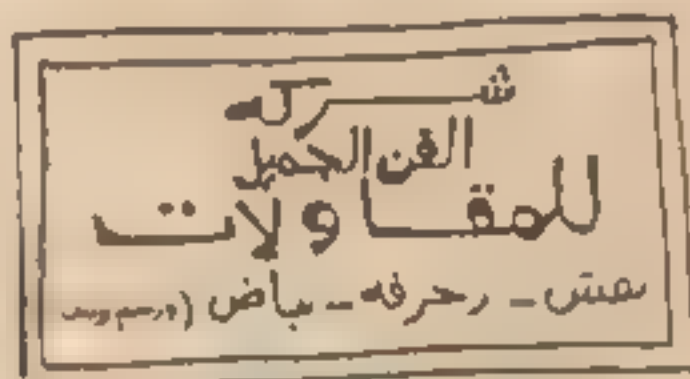 شركه
الفن الجميل
للمقاولات
نقش - زخرفه - بياض (